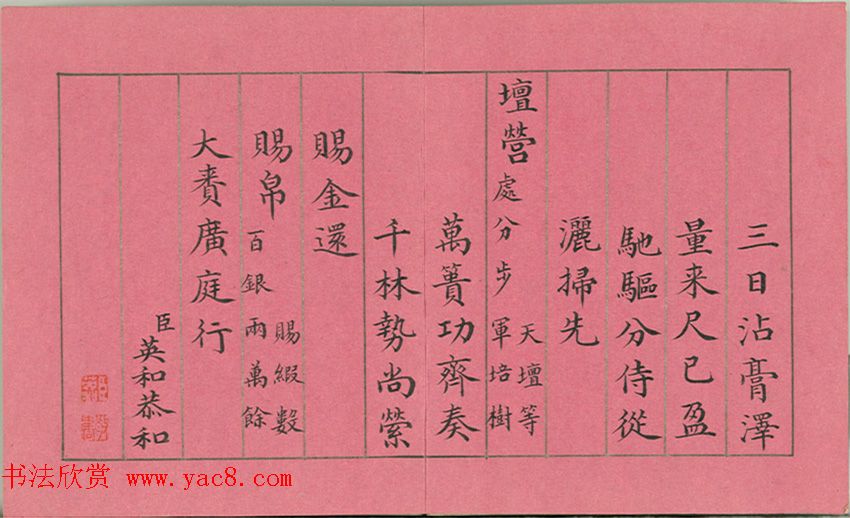 三日沾膏澤
量来尺已盈
馳驅分侍從
灑掃先
壇營
天壇等
處分步軍培樹
萬簣功齊奏
千林勢尚縈
賜金還
賜帛
賜緞數
百銀兩萬餘
大賚廣庭行
臣英和恭和
书法欣赏 www.yac8.com